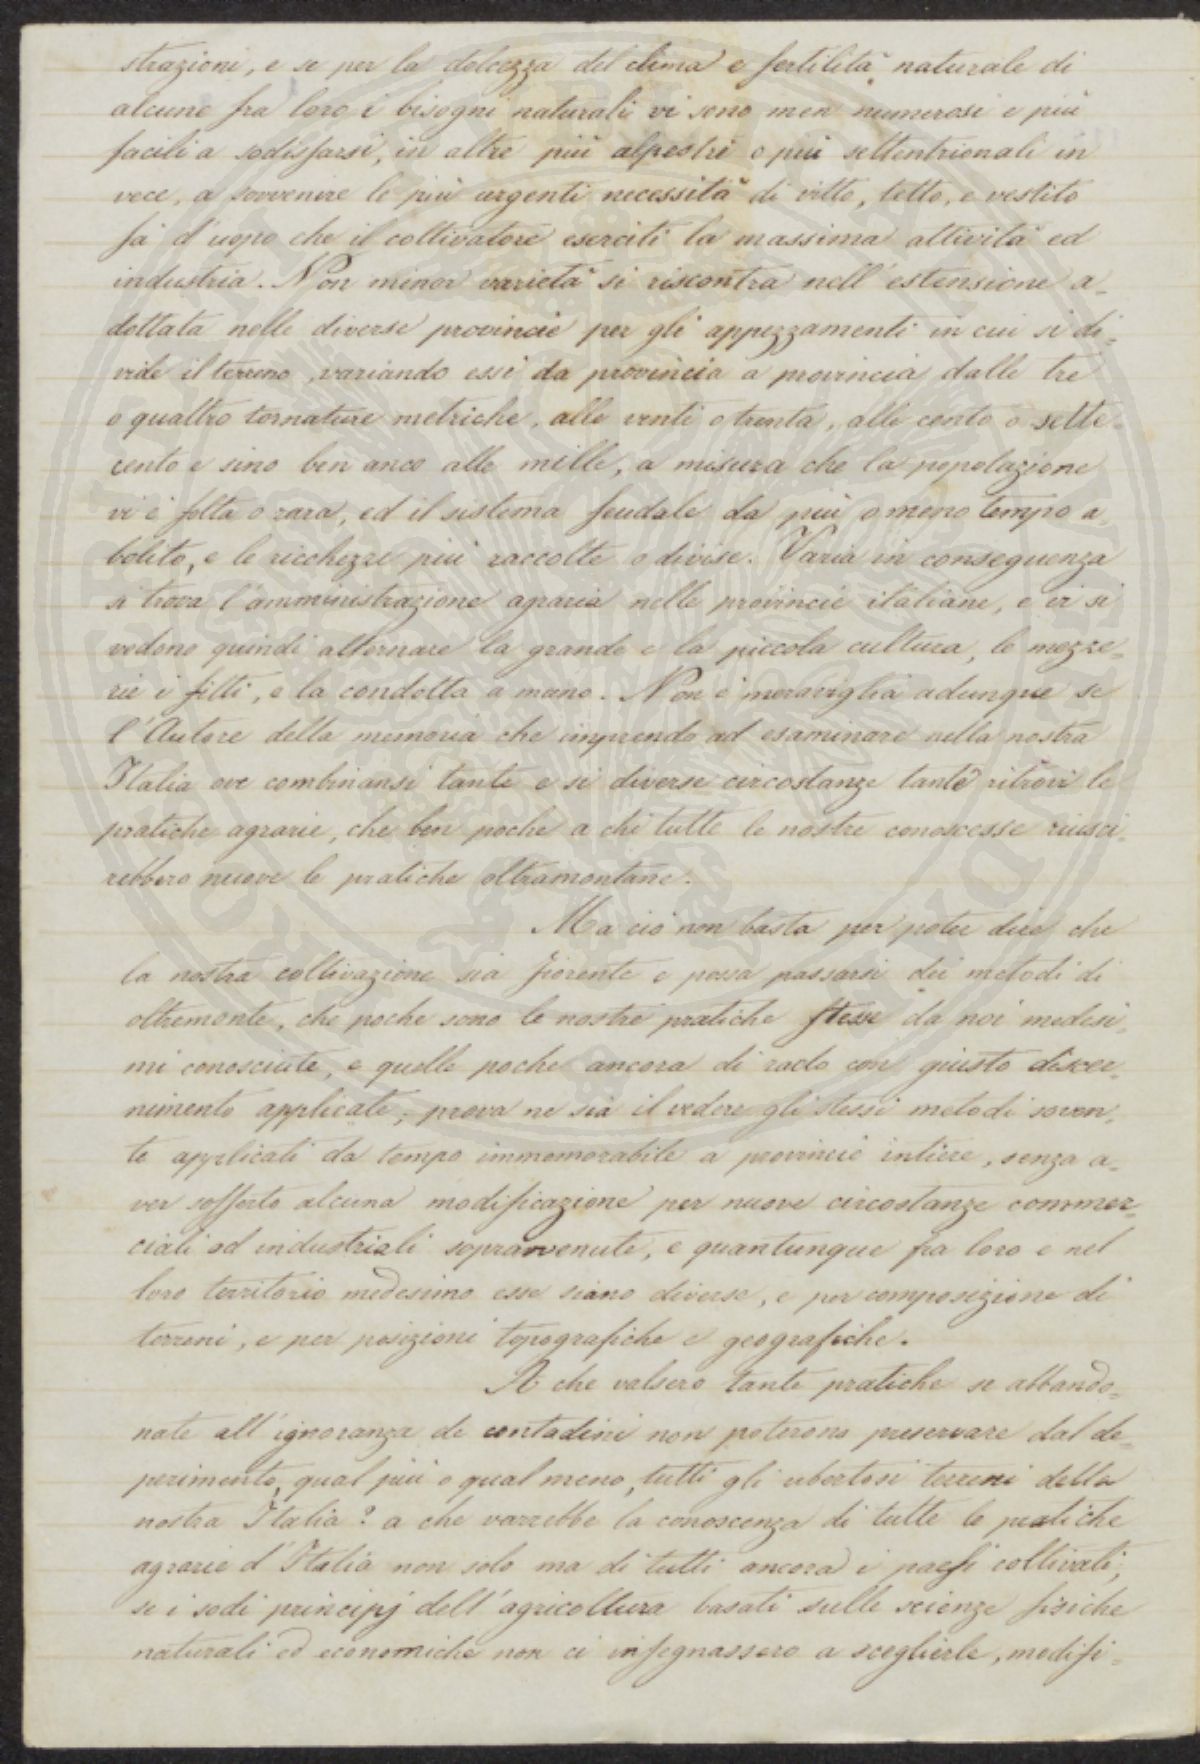 strazioni, e se per la dolcezza del clima e fertilità naturale di
alcune fra loro i bisogni naturali vi sono men numerosi e più
facili a sodisfarsi, in altre più alpestri o più settentrionali in
vece, a sovvenire le più urgenti necessità di vitto, tetto, e vestito
fà d'uopo che il coltivatore eserciti la massima attività ed
industria. Non minor varietà si riscontra nell'estensione a=
dottata nelle diverse provincie per gli appezzamenti in cui si di=
vide il terreno, variando essi da provincia a provincia dalle tre
o quattro tornature metriche, alle venti o trenta, alle cento o sette=
cento e sino ben anco alle mille, a misura che la popolazione
vi è folta o rara, ed il sistema feudale da più o meno tempo a=
bolito, e le ricchezze più raccolte o divise. Varia in conseguenza
si trova l'amministrazione agraria nelle provincie italiane, e vi si
vedono quindi alternare la grande e la piccola cultura, le mezze=
rie i fitti, e la condotta a mano. Non è meraviglia adunque se
l'Autore della memoria che imprendo ad esaminare nella nostra
Italia ove combinansi tante e sì diverse circostanze tante ritrovi le
pratiche agrarie, che ben poche a chi tutte le nostre conoscesse riusci=
rebbero nuove le pratiche oltramontane.
Ma ciò non basta per poter dire che
la nostra coltivazione sia fiorente e possa passarsi dei metodi di
oltremonte, che poche sono le nostre pratiche stesse da noi medesi=
mi conosciute, e quelle poche ancora di rado con giusto discer=
nimento applicate; prova ne sia il vedere gli stessi metodi soven=
te applicati da tempo immemorabile a provincie intiere, senza a=
ver sofferto alcuna modificazione per nuove circostanze commer=
ciali od industriali sopravvenute, e quantunque fra loro e nel
loro territorio medesimo esse siano diverse, e per composizione di
terreni, e per posizioni topografiche e geografiche.
A che valsero tante pratiche se abbando=
nate all'ignoranza de contadini non poterono preservare dal de=
perimento, qual più o qual meno, tutti gli ubertosi terreni della
nostra Italia? a che varrebbe la conoscenza di tutte le pratiche
agrarie d'Italia non solo ma di tutti ancora i paesi coltivati,
se i sodi principj dell'agricoltura basati sulle scienze fisiche
naturali ed economiche non ci insegnassero a sceglierle, modifi=